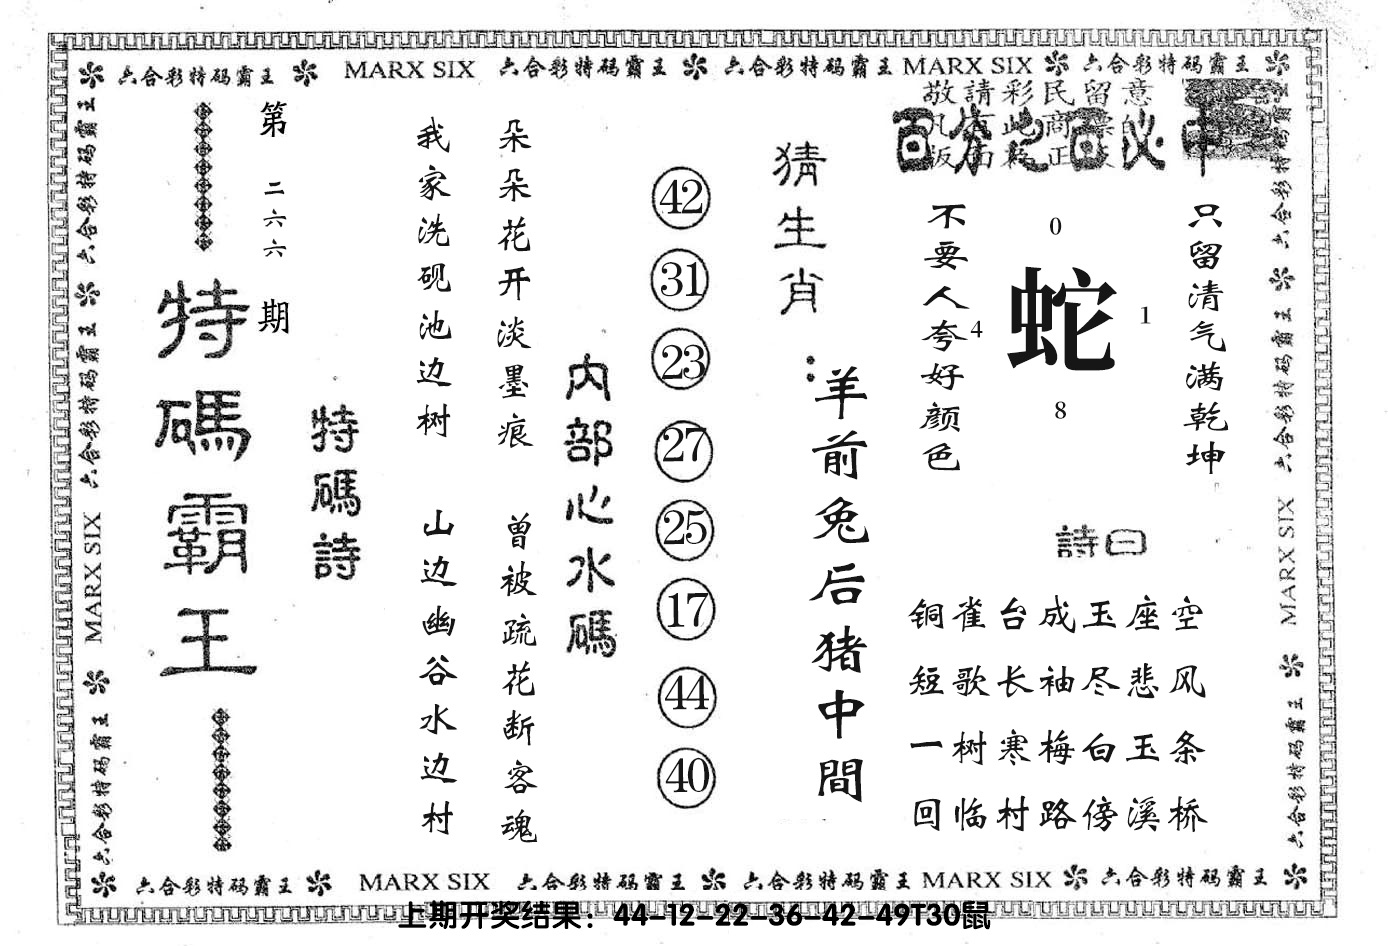 六合彩特码霸王 MARX SIX 六合彩特码霸王 六合彩特码霸王 MARX SIX 六合彩特码霸王
敬請彩民留意
百分之百必中
只留清气满乾坤
不要人夸好颜色
0
4 蛇 1
8
詩曰
铜雀台成玉座空
短歌长袖尽悲风
一树寒梅白玉条
回临村路傍溪桥
猜生肖：
羊前兔后猪中間
42
31
23
27
25
17
44
40
内部心水碼
朵朵花开淡墨痕 曾被疏花断客魂
我家洗砚池边树 山边幽谷水边村
特碼詩
第二六六期
特碼霸王
六合彩特码霸王 六合彩特码霸王 MARX SIX 六合彩特码霸王
六合彩特码霸王 六合彩特码霸王 MARX SIX 六合彩特码霸王
六合彩特码霸王 MARX SIX 六合彩特码霸王 六合彩特码霸王 MARX SIX 六合彩特码霸王
上期开奖结果：44-12-22-36-42-49T30鼠